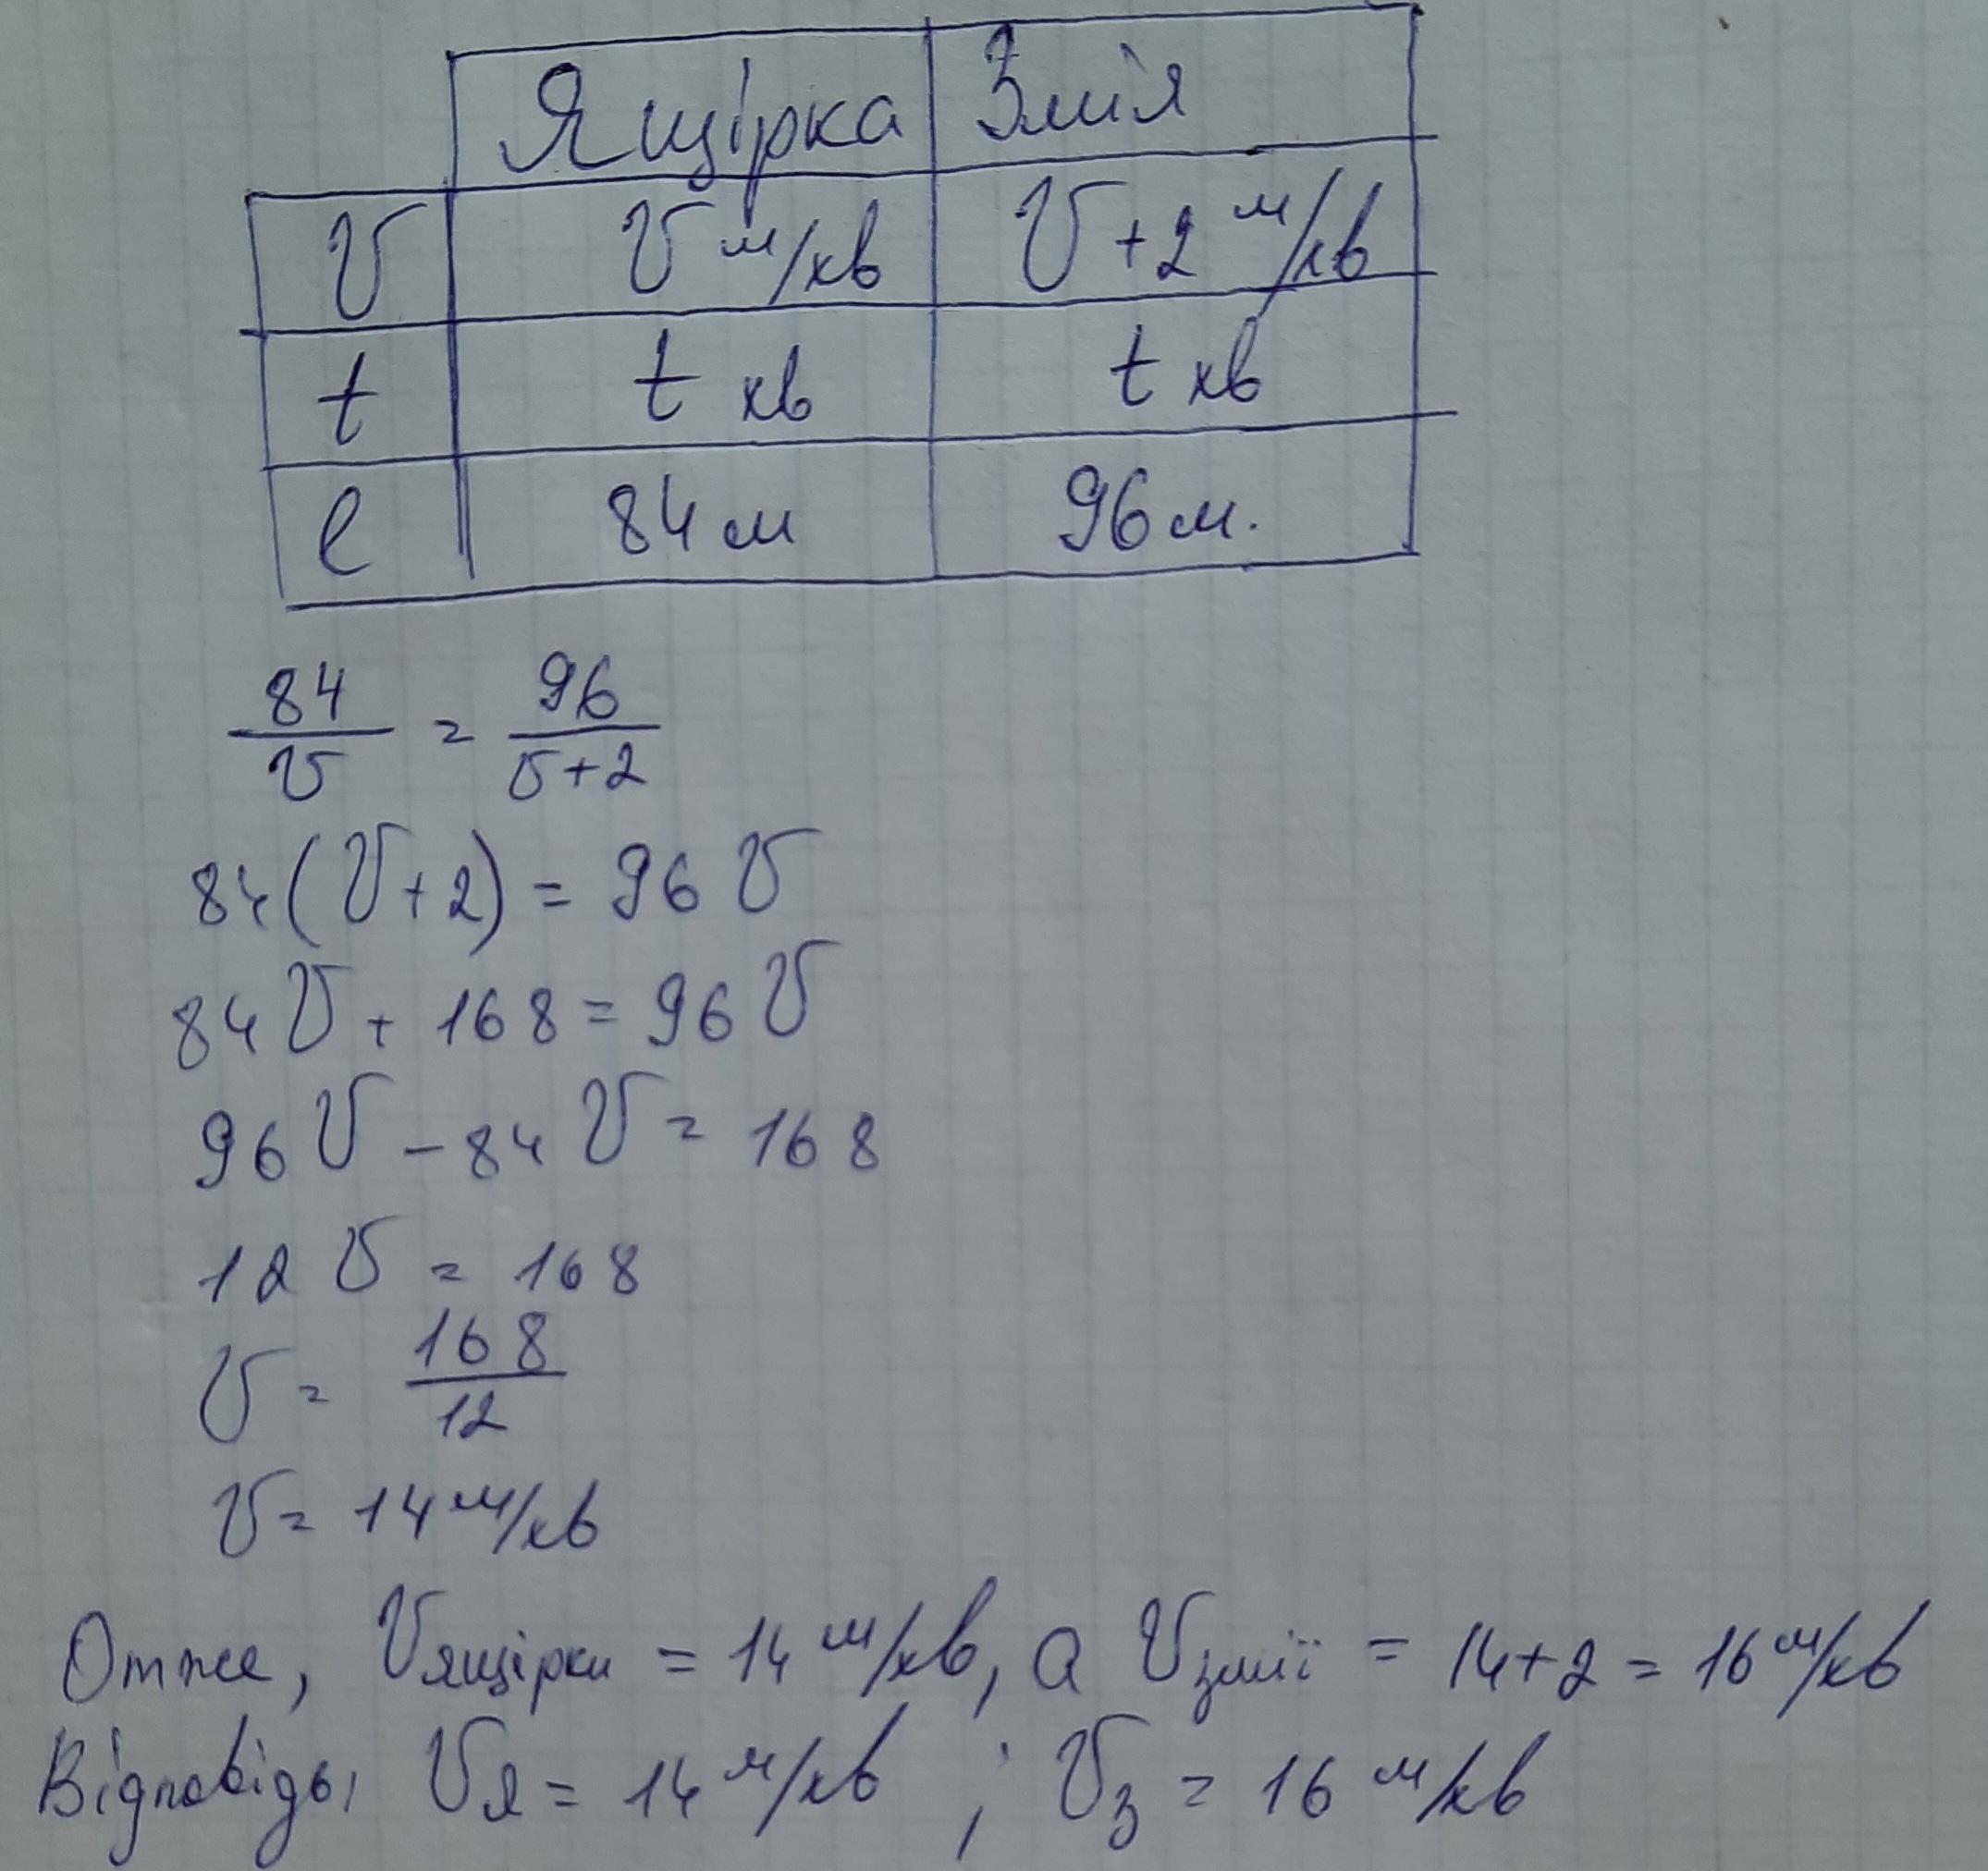 Ящірка Змія
V V м/хв V+2 м/хв
t t хв t хв
l 84 м 96 м.
84/V = 96/V+2
84(V+2) = 96V
84V + 168 = 96V
96V - 84V = 168
12V = 168
V = 168/12
V = 14 м/хв
Отже, Vящірки = 14 м/хв, а Vзмії = 14+2 = 16 м/хв
Відповідь, Vя = 14 м/хв ; Vз = 16 м/хв